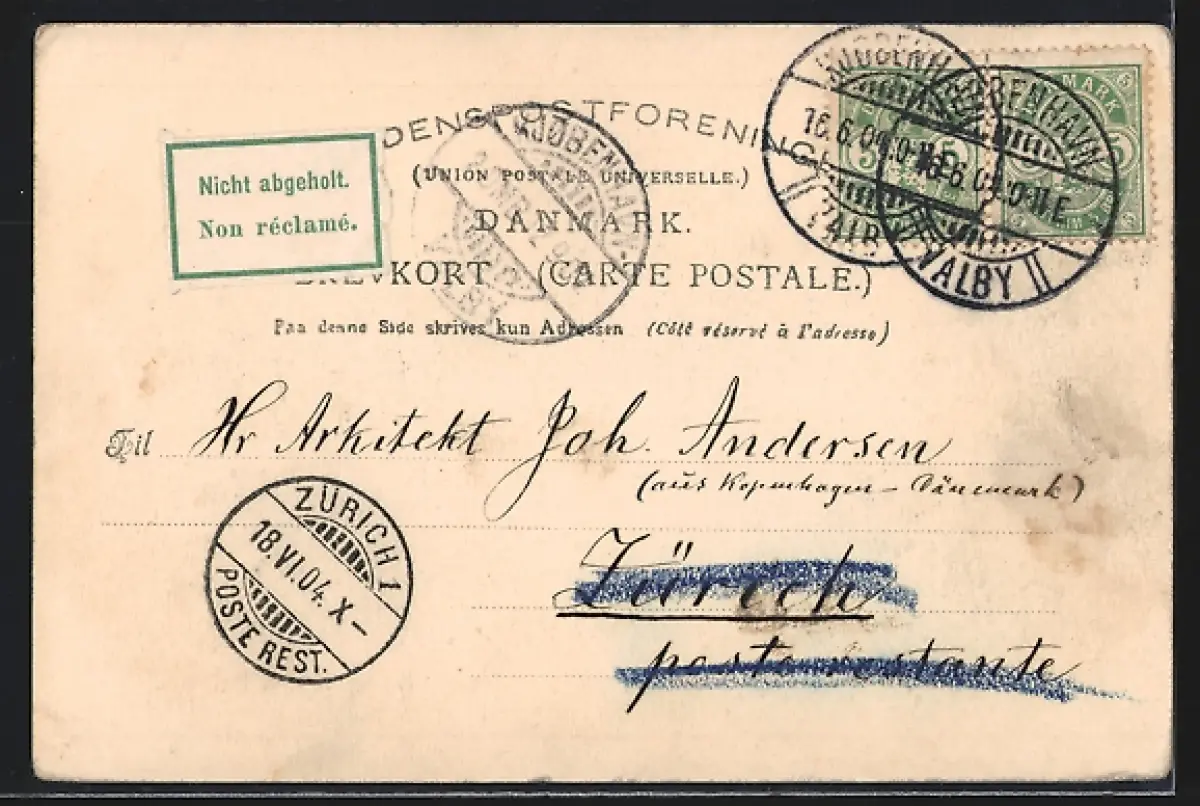 DENSPOSTFORENING
(UNION POSTALE UNIVERSELLE.)
DANMARK.
BREVKORT (CARTE POSTALE.)
Paa denne Side skrives kun Adressen (Côté réservé à l'adresse)
Nicht abgeholt.
Non réclamé.
KJØBENHAVN
16.6.04
VALBY
KJØBENHAVN
16.6.04 10-11 E
VALBY II
5
5
KJØBENHAVN
Til Hr Arkitekt Joh. Andersen
(aus Kopenhagen – Dänemark)
Zürich
poste restante
ZÜRICH 1
18.VI.04. X–
POSTE REST.